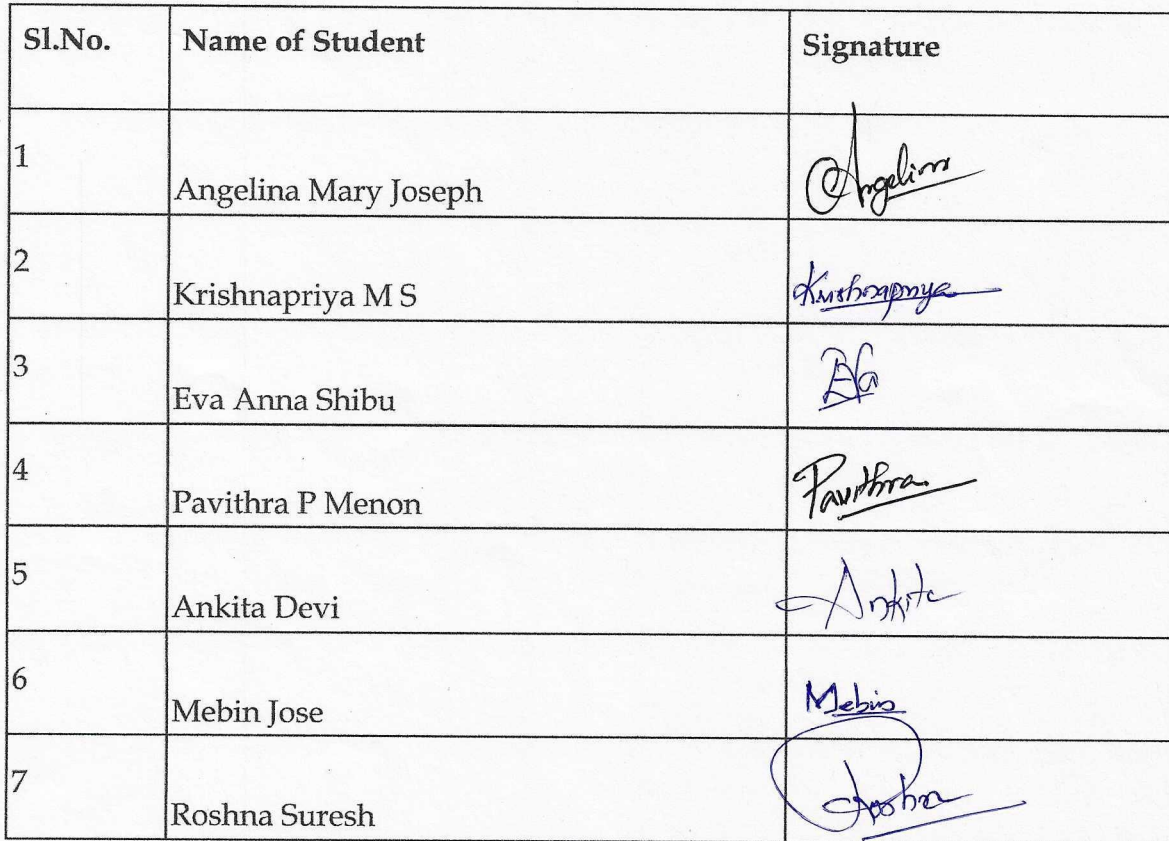 Sl.No. Name of Student Signature
1 Angelina Mary Joseph Angelina
2 Krishnapriya M S Krishnapriya
3 Eva Anna Shibu Eva
4 Pavithra P Menon Pavithra
5 Ankita Devi Ankita
6 Mebin Jose Mebin
7 Roshna Suresh Roshna